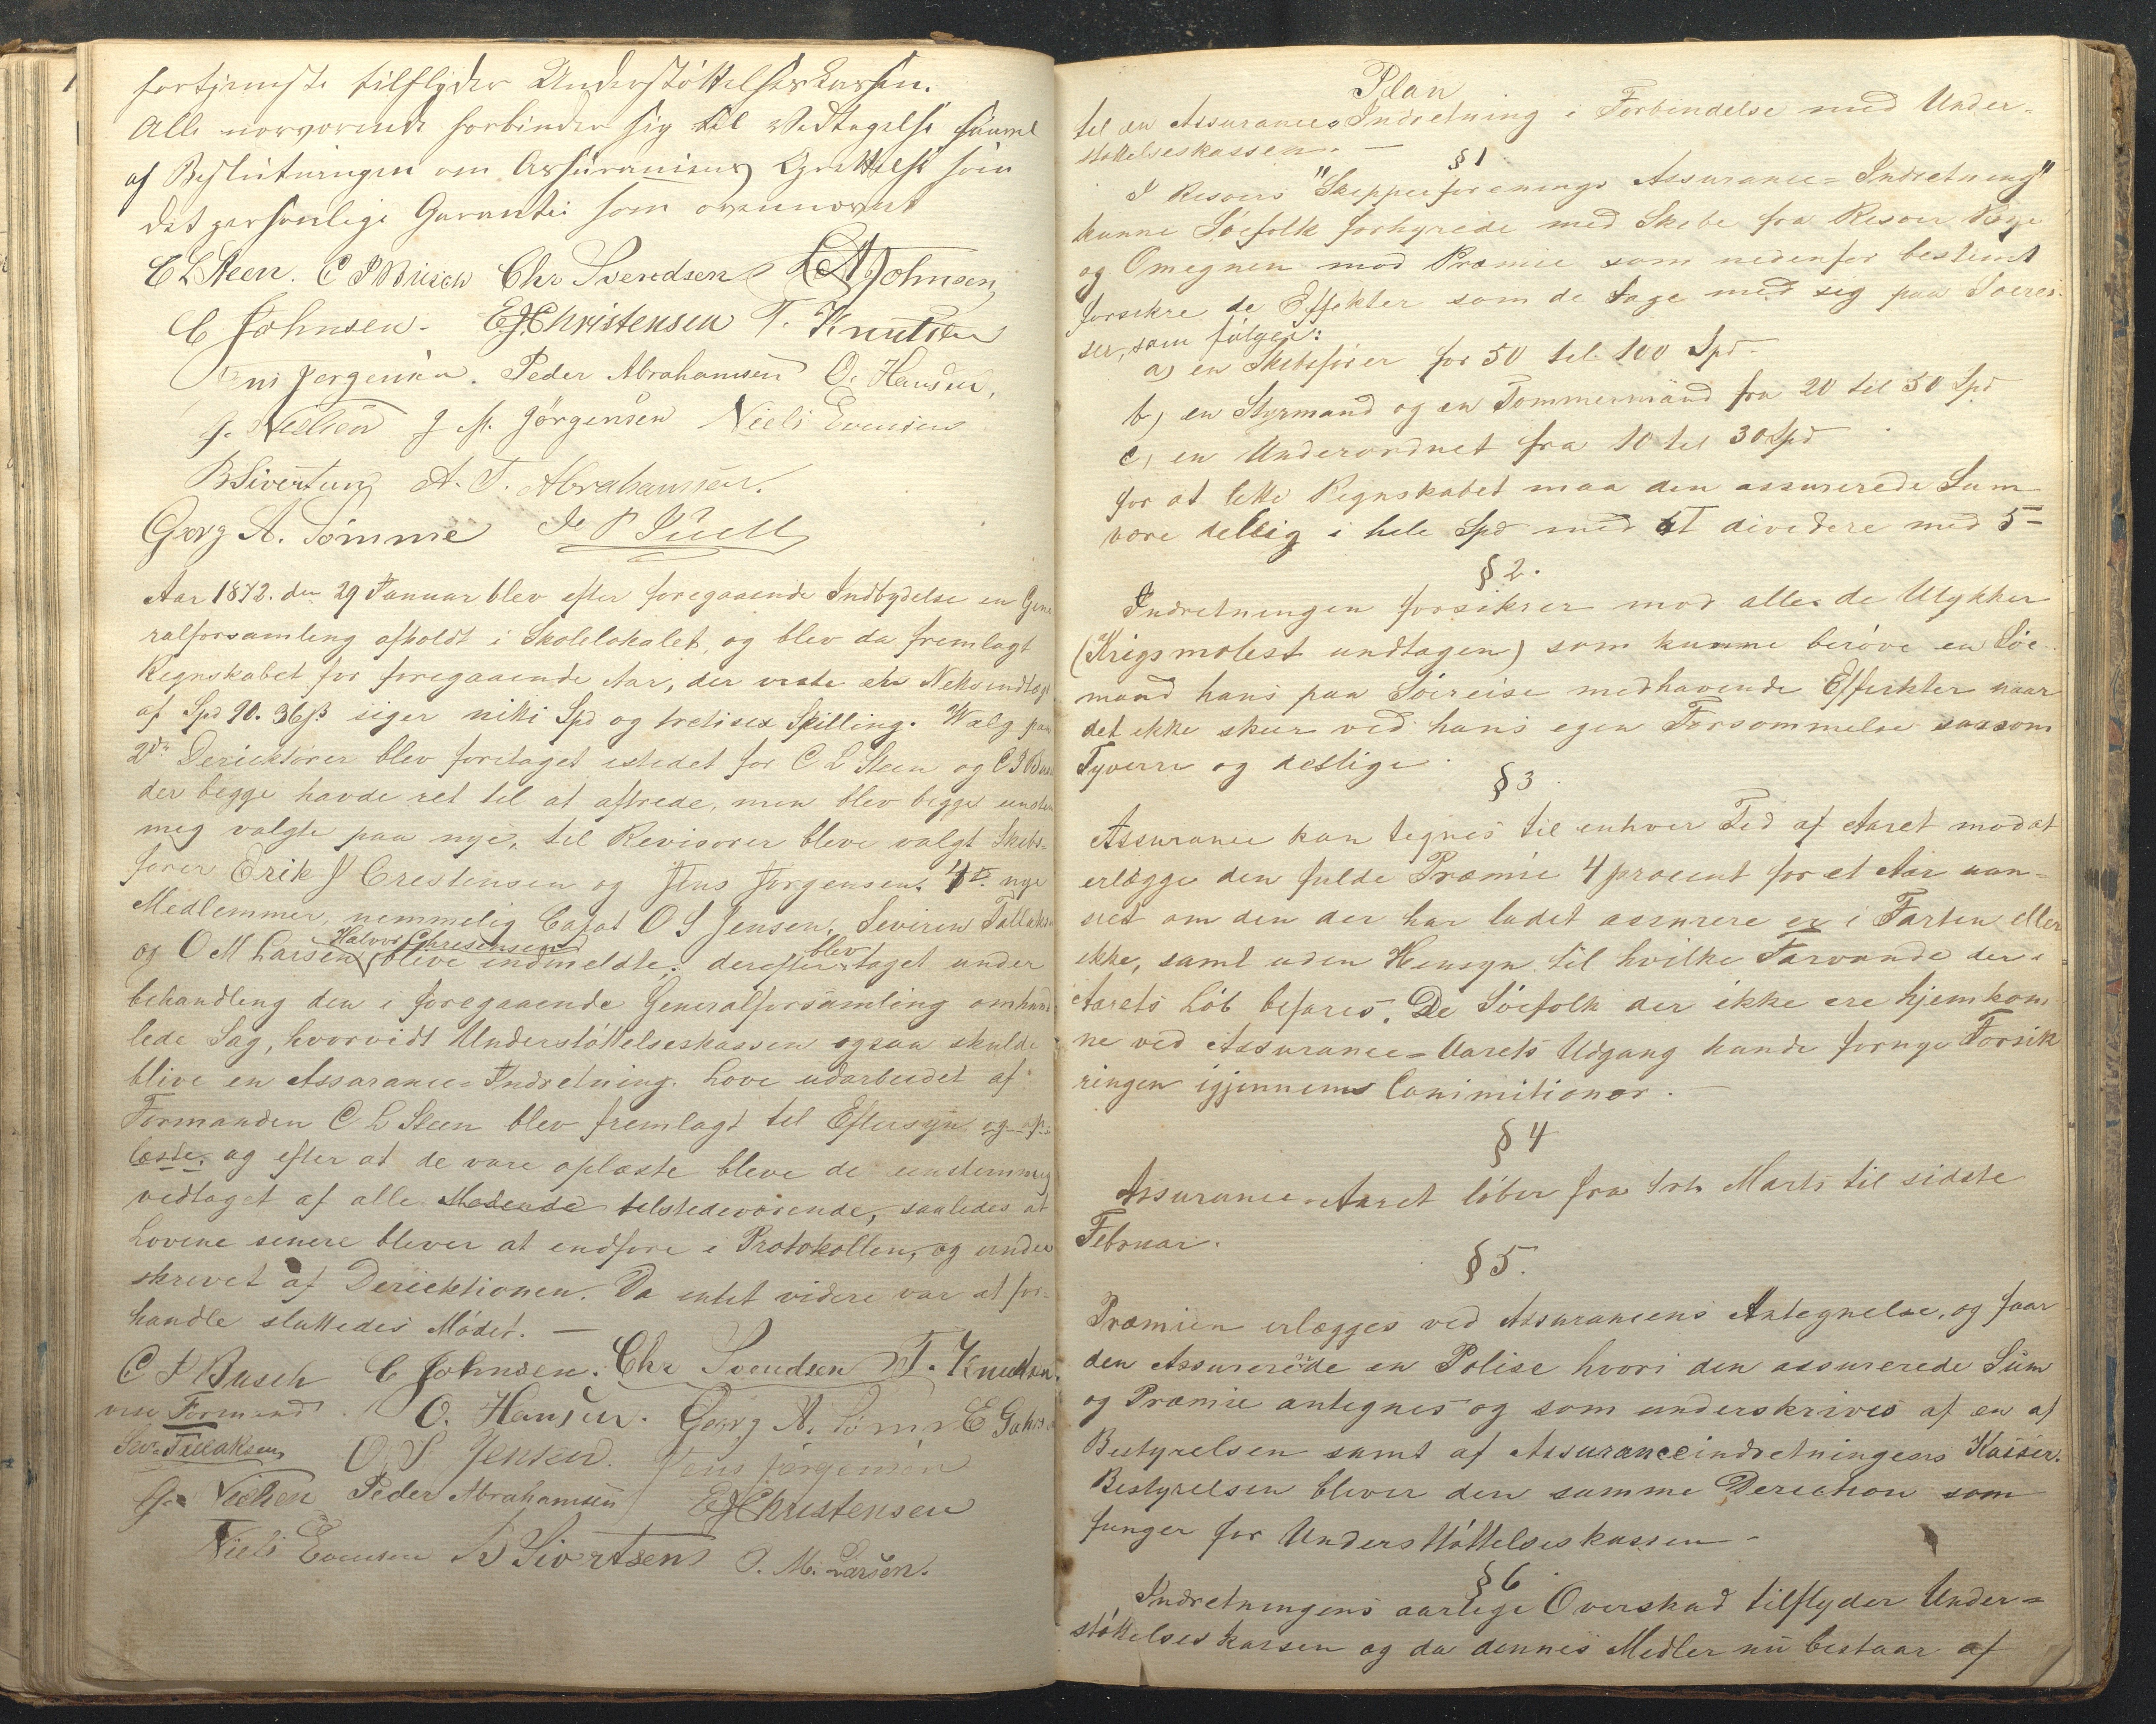 fortjeneste tilflyder Understöttelseskassen.
Alle nærværende forbinder sig til Vedtagelse saavel
af Beslutningen om Assurancens Oprettelse som
det personlige Garanti som ovennævnt
C L Steen. C P Busch Chr Svendsen L A Johnsen
C Johnsen. E J Christensen T. Knutsen
Jens Jørgensen. Peder Abrahamsen O. Hansen,
J. Nielsen J M. Jörgensen Niels Evensen
B Sivertsen A. T. Abrahamsen.
Georg A. Sömme
Aar 1872. den 29 Januar blev efter foregaaende Indbydelse en Gene
ralforsamling afholdt i Skolelokalet, og blev da fremlagt
Regnskabet for foregaaende Aar, der viste en Netoindtægt
af Spd 90. 36 ß siger nitti Spd og tretisex Skilling. Valg paa
2de Deriektörer blev foretaget istedet for C L Steen og C P Busch
der begge havde ret til at aftrede, men blev begge enstem
mig valgte paa nye, til Revisorer bleve valgt Skibs-
förer Erik J Crestensen og Jens Jørgensen. 4r nye
Medlemmer, nemmelig Capt O S Jensen, Sevirin Tallaksen
Halvor Chrestensen blev
og O M Larsen bleve indmeldte; derefter taget under
behandling den i foregaaende Generalforsamling omhand
lede Sag, hvorvidt Understöttelseskassen ogsaa skulde
blive en Assarance-Indretning. Love udarbeidet af
Formanden C L Steen blev fremlagt til Eftersyn og op
læste, og efter at de vare oplæste bleve de enstemmig
vedtaget af alle Mødende telstedeværende, saaledes at
Lovene senere blever at endföre i Protokollen, og under
skrevet af Deriektionen. Da entet videre var at for-
handle sluttedes Mödet. —
C P Busch C Johnsen. Chr Svendsen T. Knutsen.
vise Formand O. Hansen. Georg A. Sömme
Sev. Tallaksen O. S Jensen. Jens Jørgensen
J. Nielsen Peder Abrahamsen E J Christensen
Niels Evensen B Sivertsen O. M. Larsen.
Plan
til en Assurance-Indretning i Forbindelse med Under-
støttelseskassen. —
§ 1
I Risøers "Skipperforenings Assurance-Indretning"
kunne Söefolk forhyrede med Skibe fra Risøer Bye
og Omegnen mod Præmie som nedenfor bestemt
forsikre de Effekter som de tage med sig paa Soerei-
ser, som fölger:
a) en Skibsfører for 50 til 100 Spd.
b) en Styrmand og en Tømmermand fra 20 til 50 Spd
c) en Underordnet fra 10 til 30 Spd
for at lette Regnskabet maa den assurerede Sum
være dellig i hele Spd med at divedere med 5 –
§ 2.
Indretningen forsikrer mod alle de Ulykker
(Krigsmolest undtagen) som kunne beröve en Söe-
mand hans paa Söereise medhavende Effekter naar
det ikke skeer ved hans egen Forsømmelse saasom
Tyveri og deslige.
§ 3.
Assurance kan tegnes til enhver Tid af Aaret mod at
erlægge den fulde Præmie 4 procent for et Aar uan-
seet om den der har ladet assurere er i Farten eller
ikke, samt uden Hensyn til hvilke Farvande der i
Aarets Löb befares. De Söefolk der ikke ere hjemkom
ne ved Assurance-Aarets Udgang kunde fornye Forsik
ringen igjennem Comimitioner. —
§ 4
Assurance-Aaret löber fra 1ste Marts til sidste
Februar.
§ 5.
Præmien erlægges ved Assurancens Antegnelse, og faar
den Assurerede en Polise hvori den assurerede Sum
og Præmie antegnes og som underskrives af en af
Bestyrelsen samt af Assuranceindretningens Kasser.
Bestyrelsen bliver den samme Derection som
funger for Understöttelseskassen –
§ 6.
Indretningens aarlige Overskud tilflyder Under-
stöttelseskassen og da dennes Midler nu bestaar af